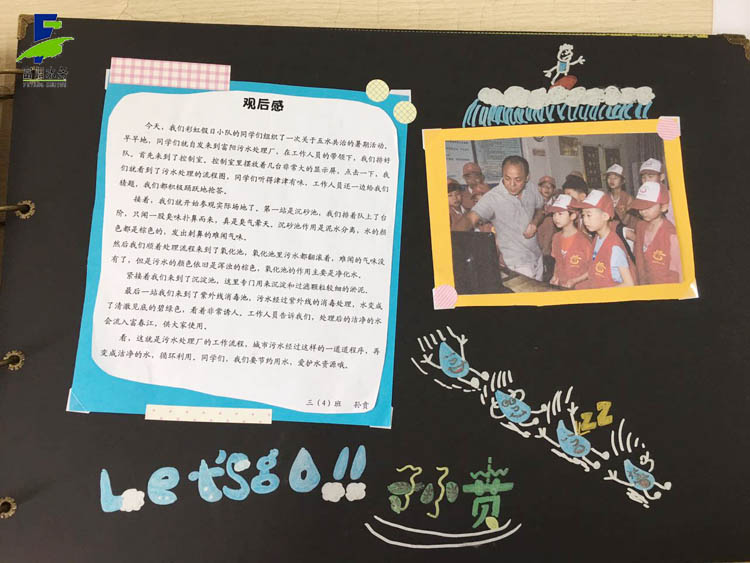 富阳水务
观后感
今天，我们彩虹假日小队的同学们组织了一次关于五水共治的暑期活动。
早早地，同学们就自发来到富阳污水处理厂，在工作人员的带领下，我们排好
队。首先来到了控制室，控制室里摆放着几台非常大的显示屏，点击一下，我
们就看到了污水处理的流程图。同学们听得津津有味。工作人员还一边给我们
猜题，我们都积极踊跃地抢答。
接着，我们就开始参观实际场地了。第一站是沉砂池，我们排着队上了台
阶，只闻一股臭味扑鼻而来，真是臭气晕天。沉砂池作用是泥水分离，水的颜
色都是棕色的，发出刺鼻的难闻气味。
然后我们顺着处理流程来到了氧化池，氧化池里污水都翻滚着，难闻的气味没
有了，但是污水的颜色依旧是浑浊的棕色，氧化池的作用主要是净化水。
紧接着我们来到了沉淀池，这里专门用来沉淀和过滤颗粒较细的淤泥。
最后一站我们来到了紫外线消毒池，污水经过紫外线的消毒处理，水变成
了清澈见底的碧绿色，看着非常诱人。工作人员告诉我们，处理后的洁净的水
会流入富春江，供大家使用。
看，这就是污水处理厂的工作流程，城市污水经过这样的一道道程序，再
变成洁净的水，循环利用。同学们，我们要节约用水，爱护水资源哦。
三（4）班 孙贲
ZZ
Let'sgo!!